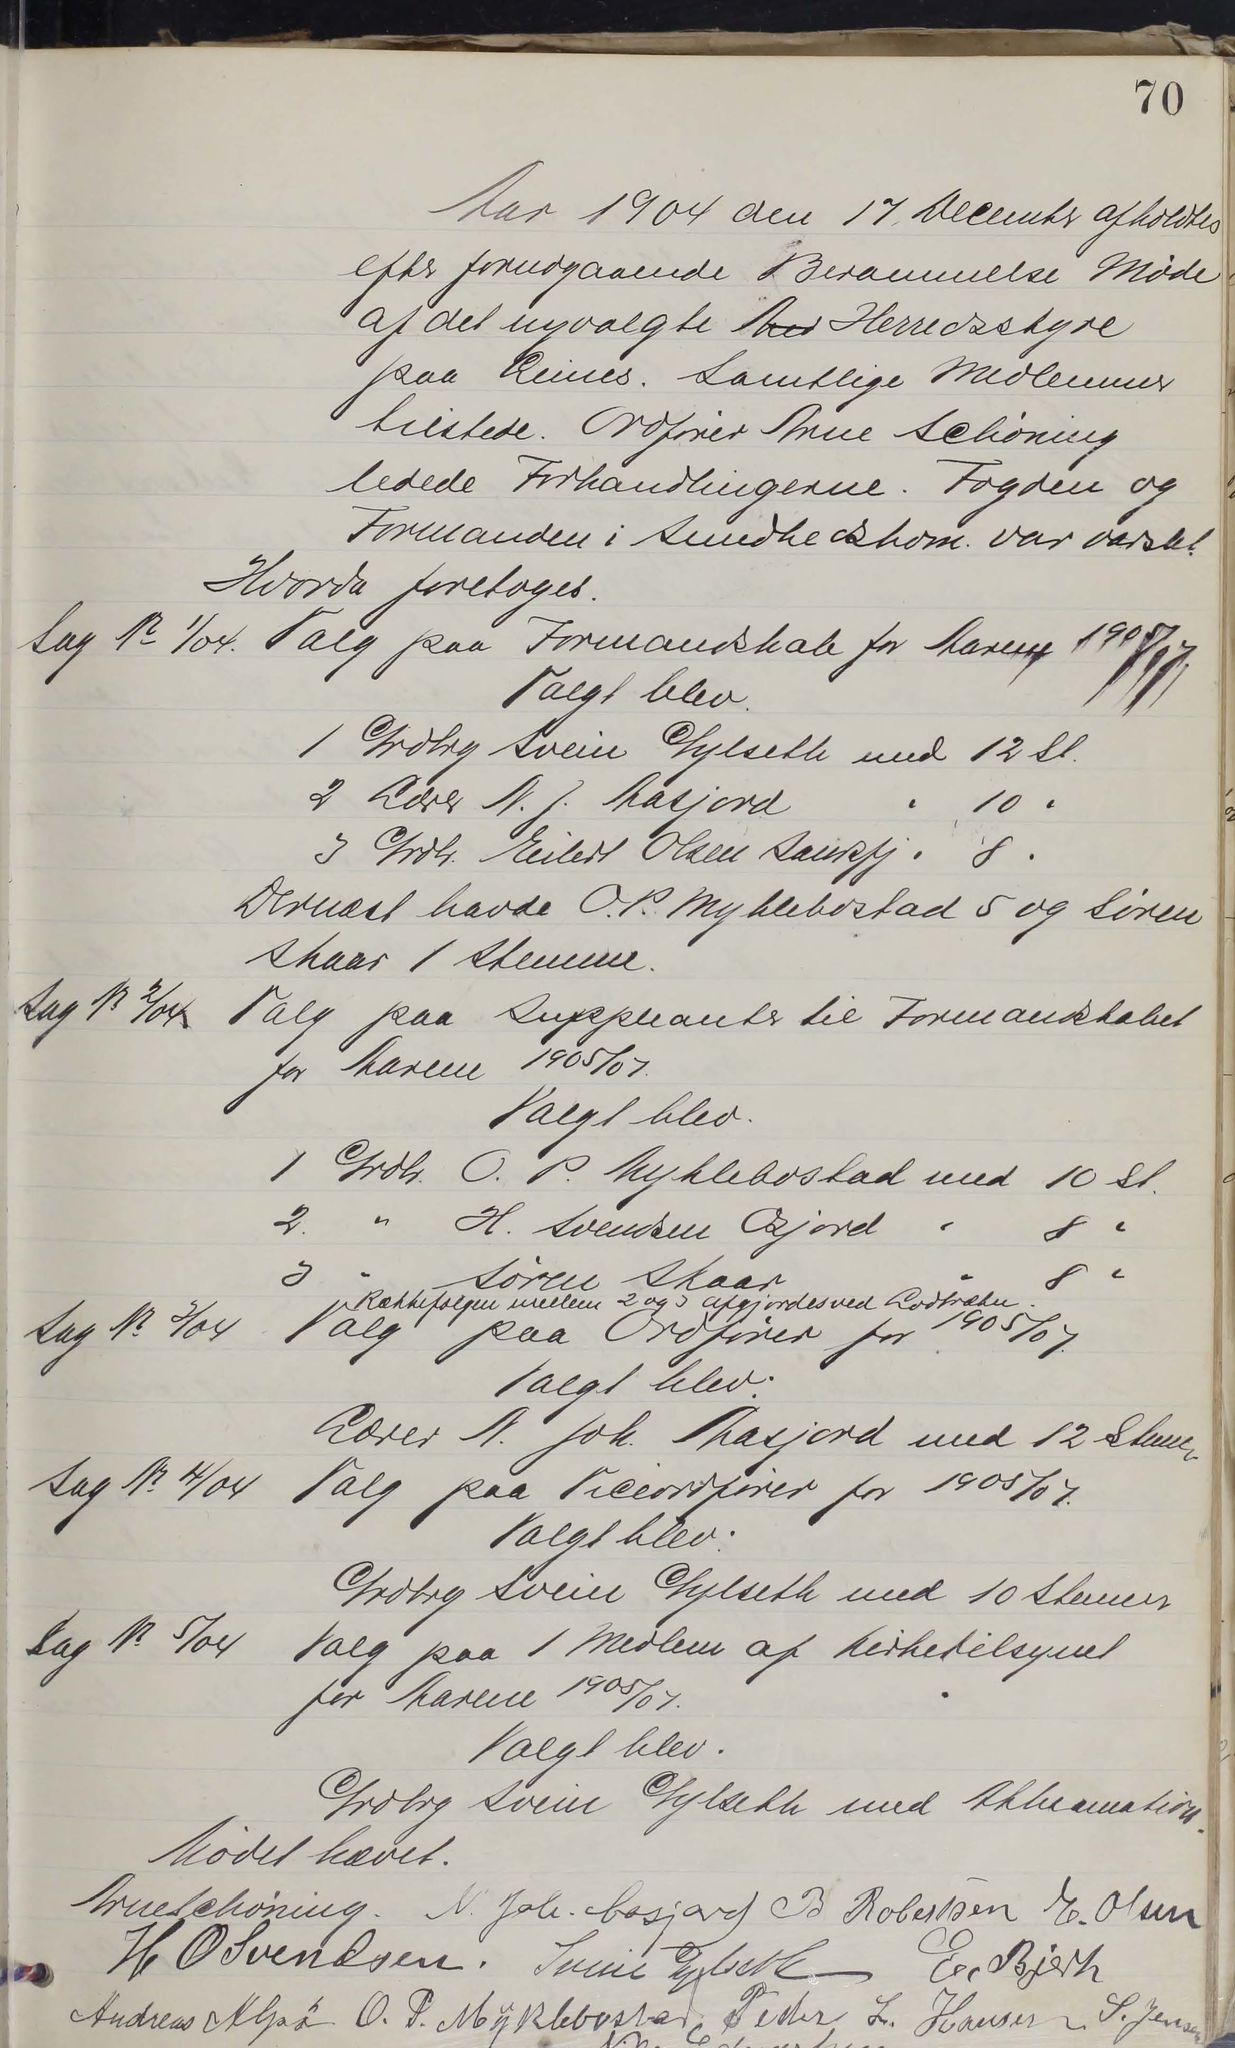 70
Aar 1904 den 17. December afholdtes
efter forudgaaende Berammelse Møde
af det nyvalgte Her Herredsstyre
paa Leines. Samtlige Medlemmer
tilstede. Ordfører Arne Schöning
ledede Forhandlingerne. Fogden og
Formanden i Sundhedskom. var varslet.
Hvorda foretoges.
Sag No 1/04. Valg paa Formandskab for Aarene 1905/07.
Valgt blev.
1 Grdbrg Svein Gylseth med 12 St.
2 Lærer N. J. Aasjord " 10 "
3 Grdb. Eilert Olsen " 8 "
Dernæst havde O. P. Myklebostad 5 og Søren
Skaar 1 Stemme.
Sag No 2/04 Valg paa Suppleanter til Formandskabet
for Aarene 1905/07.
Valgt blev.
1 Grdb. O. P. Myklebostad med 10 St.
2. " H. Svendsen " 8 "
3 " Søren Skaar " 8 "
Rækkefølgen mellem 2 og 3 afgjordes ved Lodtrækn.
Sag No 3/04 Valg paa Ordfører for 1905/07.
Valgt blev:
Lærer N. Joh. Aasjord med 12 Stem.
Sag No 4/04 Valg paa Viceordfører for 1905/07.
Valgt blev:
Grdbrg Svein Gylseth med 10 Stemmer
Sag No 5/04 Valg paa 1 Medlem af Kirketilsynet
for Aarene 1905/07.
Valgt blev.
Grdbrg Svein Gylseth med Akklamation.
Mødet hævet.
Arne Schöning. N. Joh. Aasjord B Robertsen E. Olsen
H O Svendsen. Svein Gylseth E. Bjerk
Andreas Alsø O. P. Myklebostad Peder L. Hansen S. Jensen